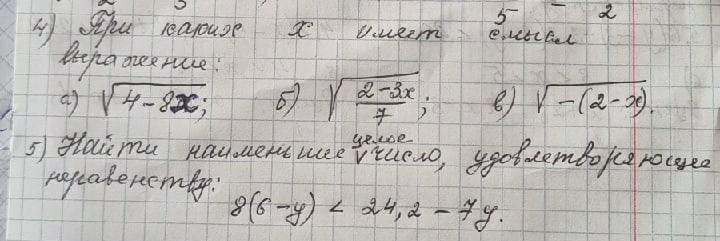 5 – 2
4) При каких x имеет смысл
выражение:
а) √(4-8x); б) √((2-3x)/7); в) √(-(2-x)).
5) Найти наименьшее целое число, удовлетворяющее
неравенству:
8(6-y) < 24,2 - 7y.